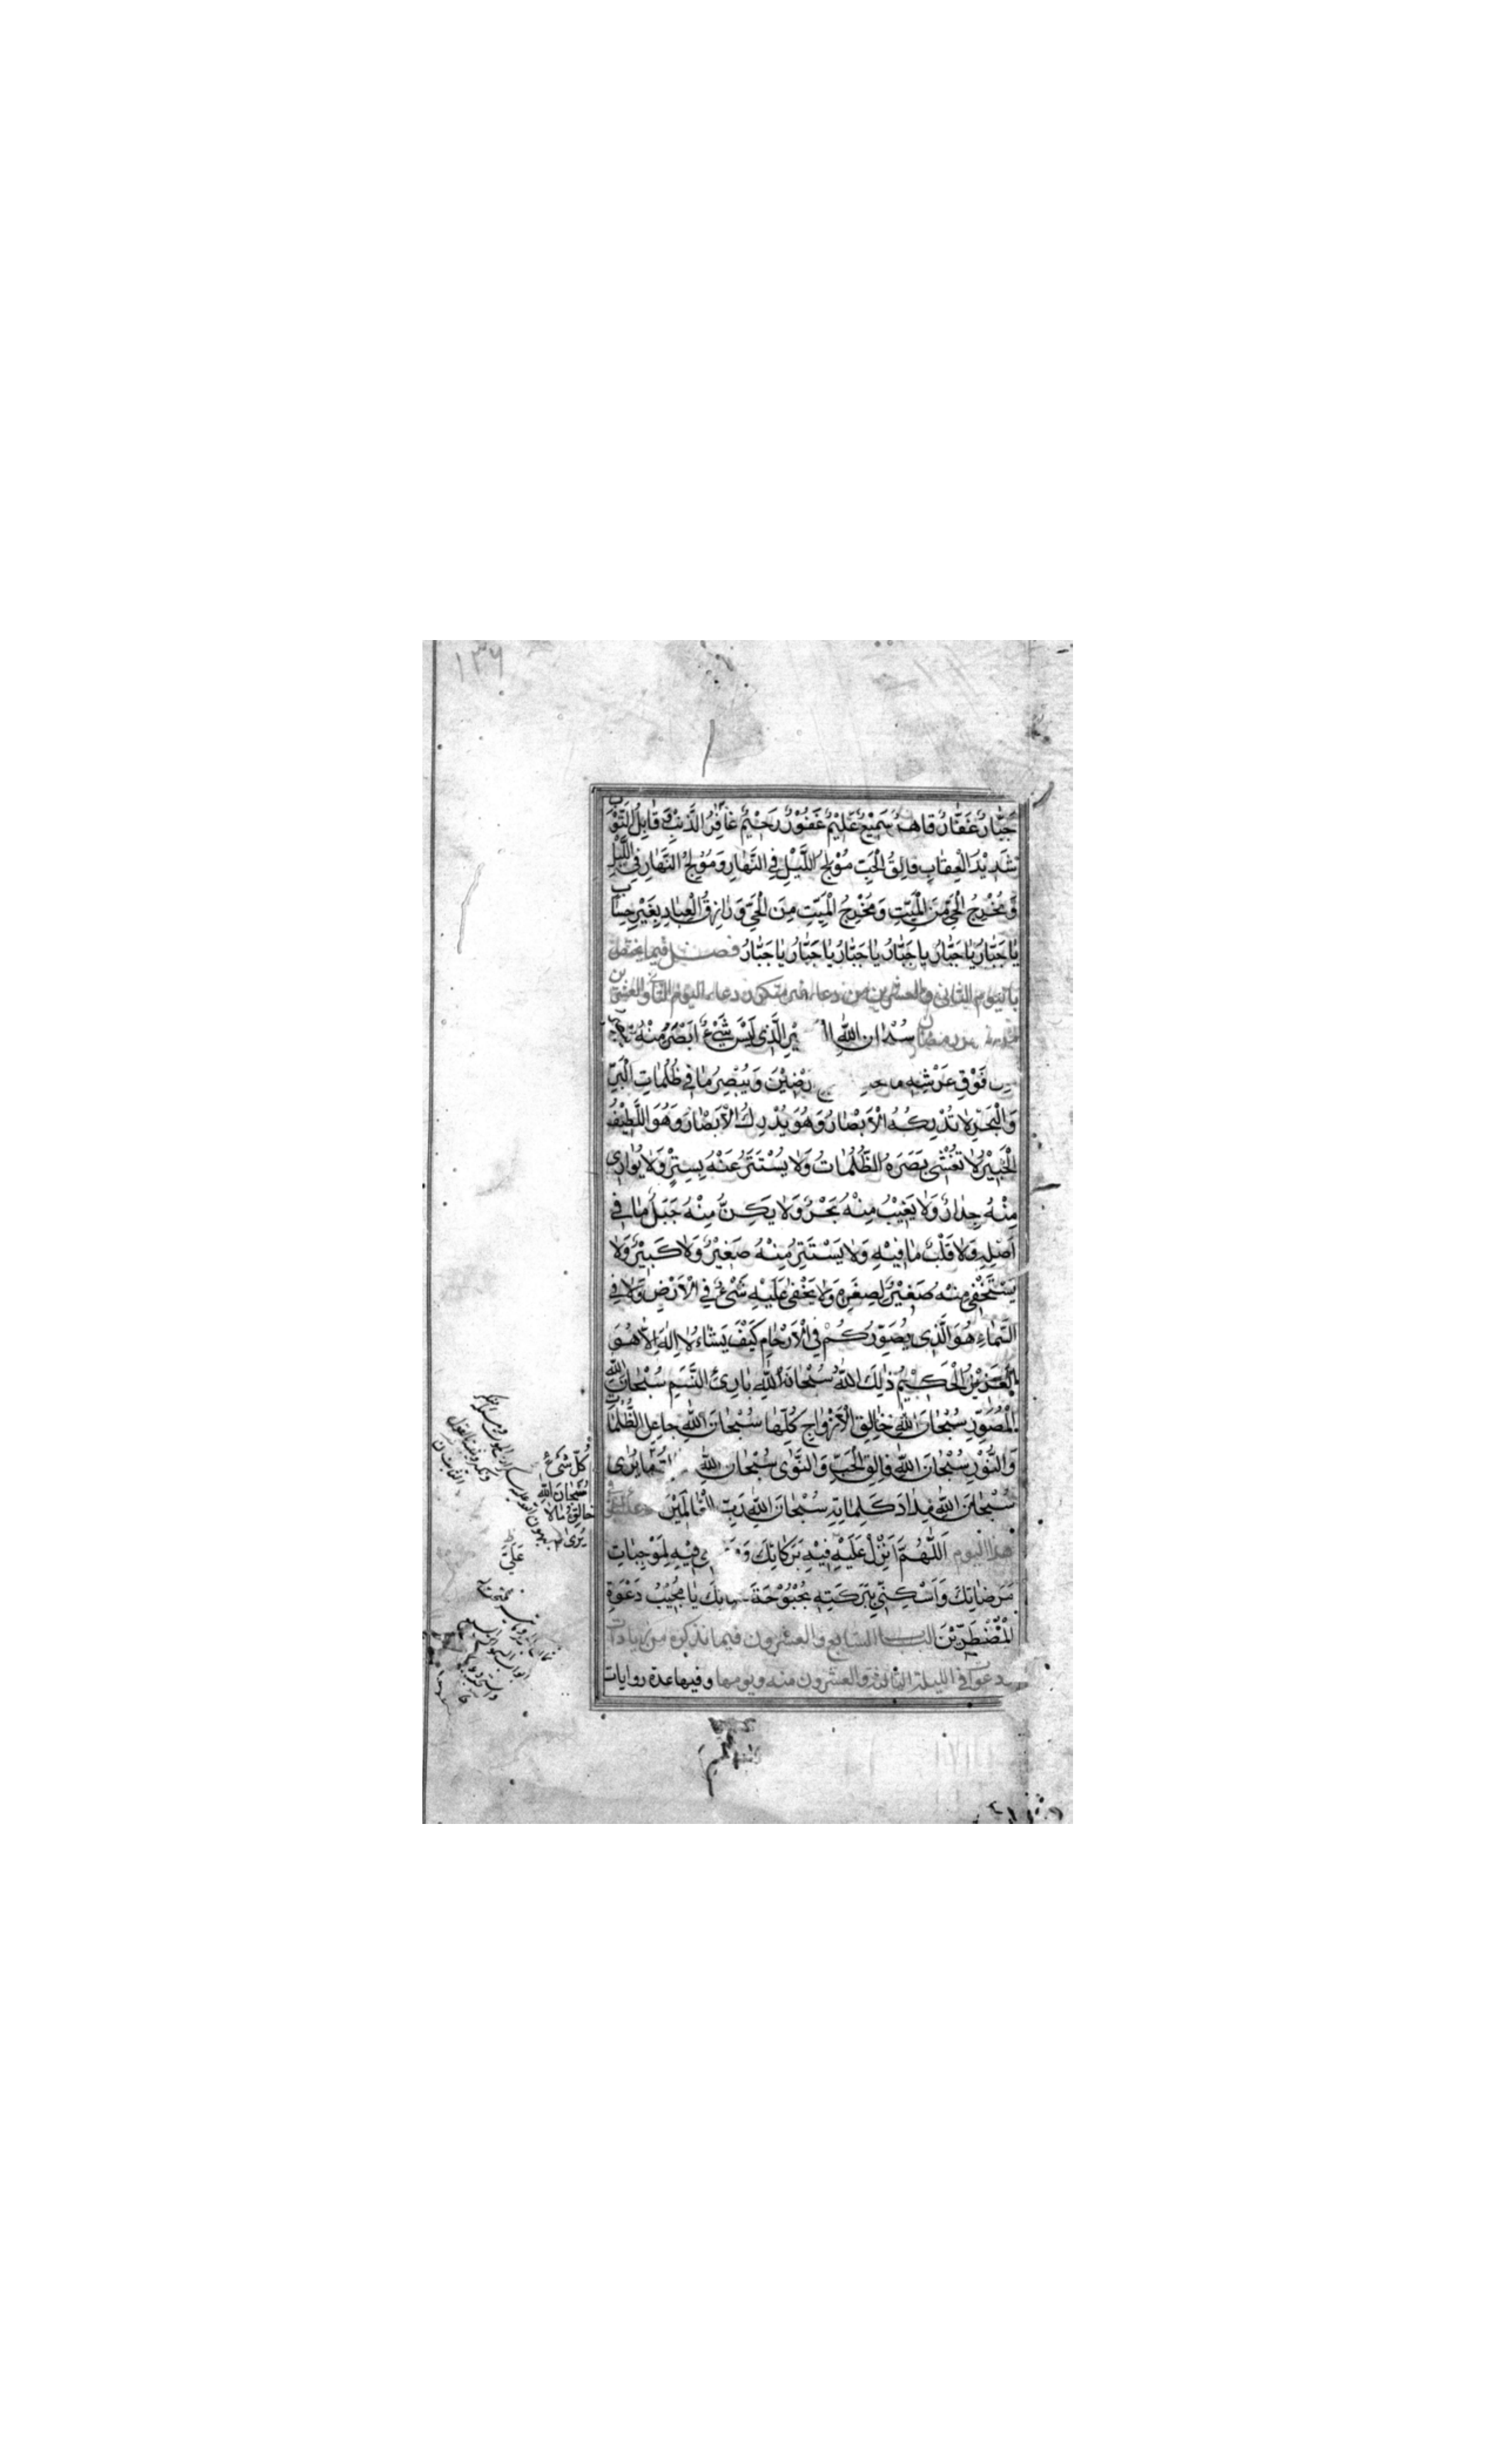 ١٣٦
جَبّارٌ غَفّارٌ قاهِرٌ سَمِيْعٌ عَلِيْمٌ غَفُوْرٌ رَحِيْمٌ غافِرُ الذَّنْبِ وَ قابِلُ التَّوْبِ
شَدِيْدُ الْعِقابِ فالِقُ الْحَبِّ مُوْلِجُ اللَّيْلِ فِي النَّهارِ وَ مُوْلِجُ النَّهارِ فِي اللَّيْلِ
وَ مُخْرِجُ الْحَيِّ مِنَ الْمَيِّتِ وَ مُخْرِجُ الْمَيِّتِ مِنَ الْحَيِّ وَ رازِقُ الْعِبادِ بِغَيْرِ حِسابٍ
يا جَبّارُ يا جَبّارُ يا جَبّارُ يا جَبّارُ يا جَبّارُ يا جَبّارُ فصل فيما يختص
باليوم الثاني والعشرين من دعاء غير متكرر دعاء اليوم الثاني والعشرين
من رمضان سُبْحانَ اللهِ الَّذِي لَيْسَ شَيْءٌ اَبْصَرَ مِنْهُ
فَوْقِ عَرْشِهِ ما وَ يُبْصِرُ ما فِي ظُلُماتِ الْبَرِّ
وَ الْبَحْرِ لا تُدْرِكُهُ الْاَبْصارُ وَ هُوَ يُدْرِكُ الْاَبْصارَ وَ هُوَ اللَّطِيْفُ
الْخَبِيْرُ لا تَغْشى بَصَرَهُ الظُّلُماتُ وَ لا يُسْتَتَرُ عَنْهُ بِسِتْرٍ وَ لا يُوارِي
مِنْهُ جِدارٌ وَ لا يَغِيْبُ مِنْهُ بَحْرٌ وَ لا يَكِنُّ مِنْهُ جَبَلٌ ما فِي
اَصْلِهِ وَ لا قَلْبٌ ما فِيْهِ وَ لا يَسْتَتِرُ مِنْهُ صَغِيْرٌ وَ لا كَبِيْرٌ وَ لا
يَسْتَخْفِي مِنْهُ صَغِيْرٌ لِصِغَرِهِ وَ لا يَخْفى عَلَيْهِ شَيْءٌ فِي الْاَرْضِ وَ لا فِي
السَّماءِ هُوَ الَّذِي يُصَوِّرُكُمْ فِي الْاَرْحامِ كَيْفَ يَشاءُ لا اِلهَ اِلاّ هُوَ
الْعَزِيْزُ الْحَكِيْمُ ذلِكَ اللهُ سُبْحانَ اللهِ بارِئِ النَّسَمِ سُبْحانَ اللهِ
الْمُصَوِّرِ سُبْحانَ اللهِ خالِقِ الْاَزْواجِ كُلِّها سُبْحانَ اللهِ جاعِلِ الظُّلُماتِ
وَ النُّوْرِ سُبْحانَ اللهِ فالِقِ الْحَبِّ وَ النَّوى سُبْحانَ اللهِ ما يُرى
سُبْحانَ اللهِ مِدادَ كَلِماتِهِ سُبْحانَ اللهِ رَبِّ الْعالَمِيْنَ
هذا اليوم اَللّهُمَّ اَنْزِلْ عَلَيَّ فِيْهِ بَرَكاتِكَ فِيْهِ لِمُوْجِباتِ
مَرْضاتِكَ وَ اَسْكِنِّي بِبَرَكَتِهِ بُحْبُوْحَةَ يا مُجِيْبَ دَعْوَةِ
الْمُضْطَرِّيْنَ الباب السابع والعشرون فيما نذكره من زيادات
دعوات في الليلة الثالثة والعشرون منه ويومها وفيها عدة روايات
كُلِّ شَيْءٍ
سُبْحانَ اللهِ
خالِقِ ما لا
يُرى